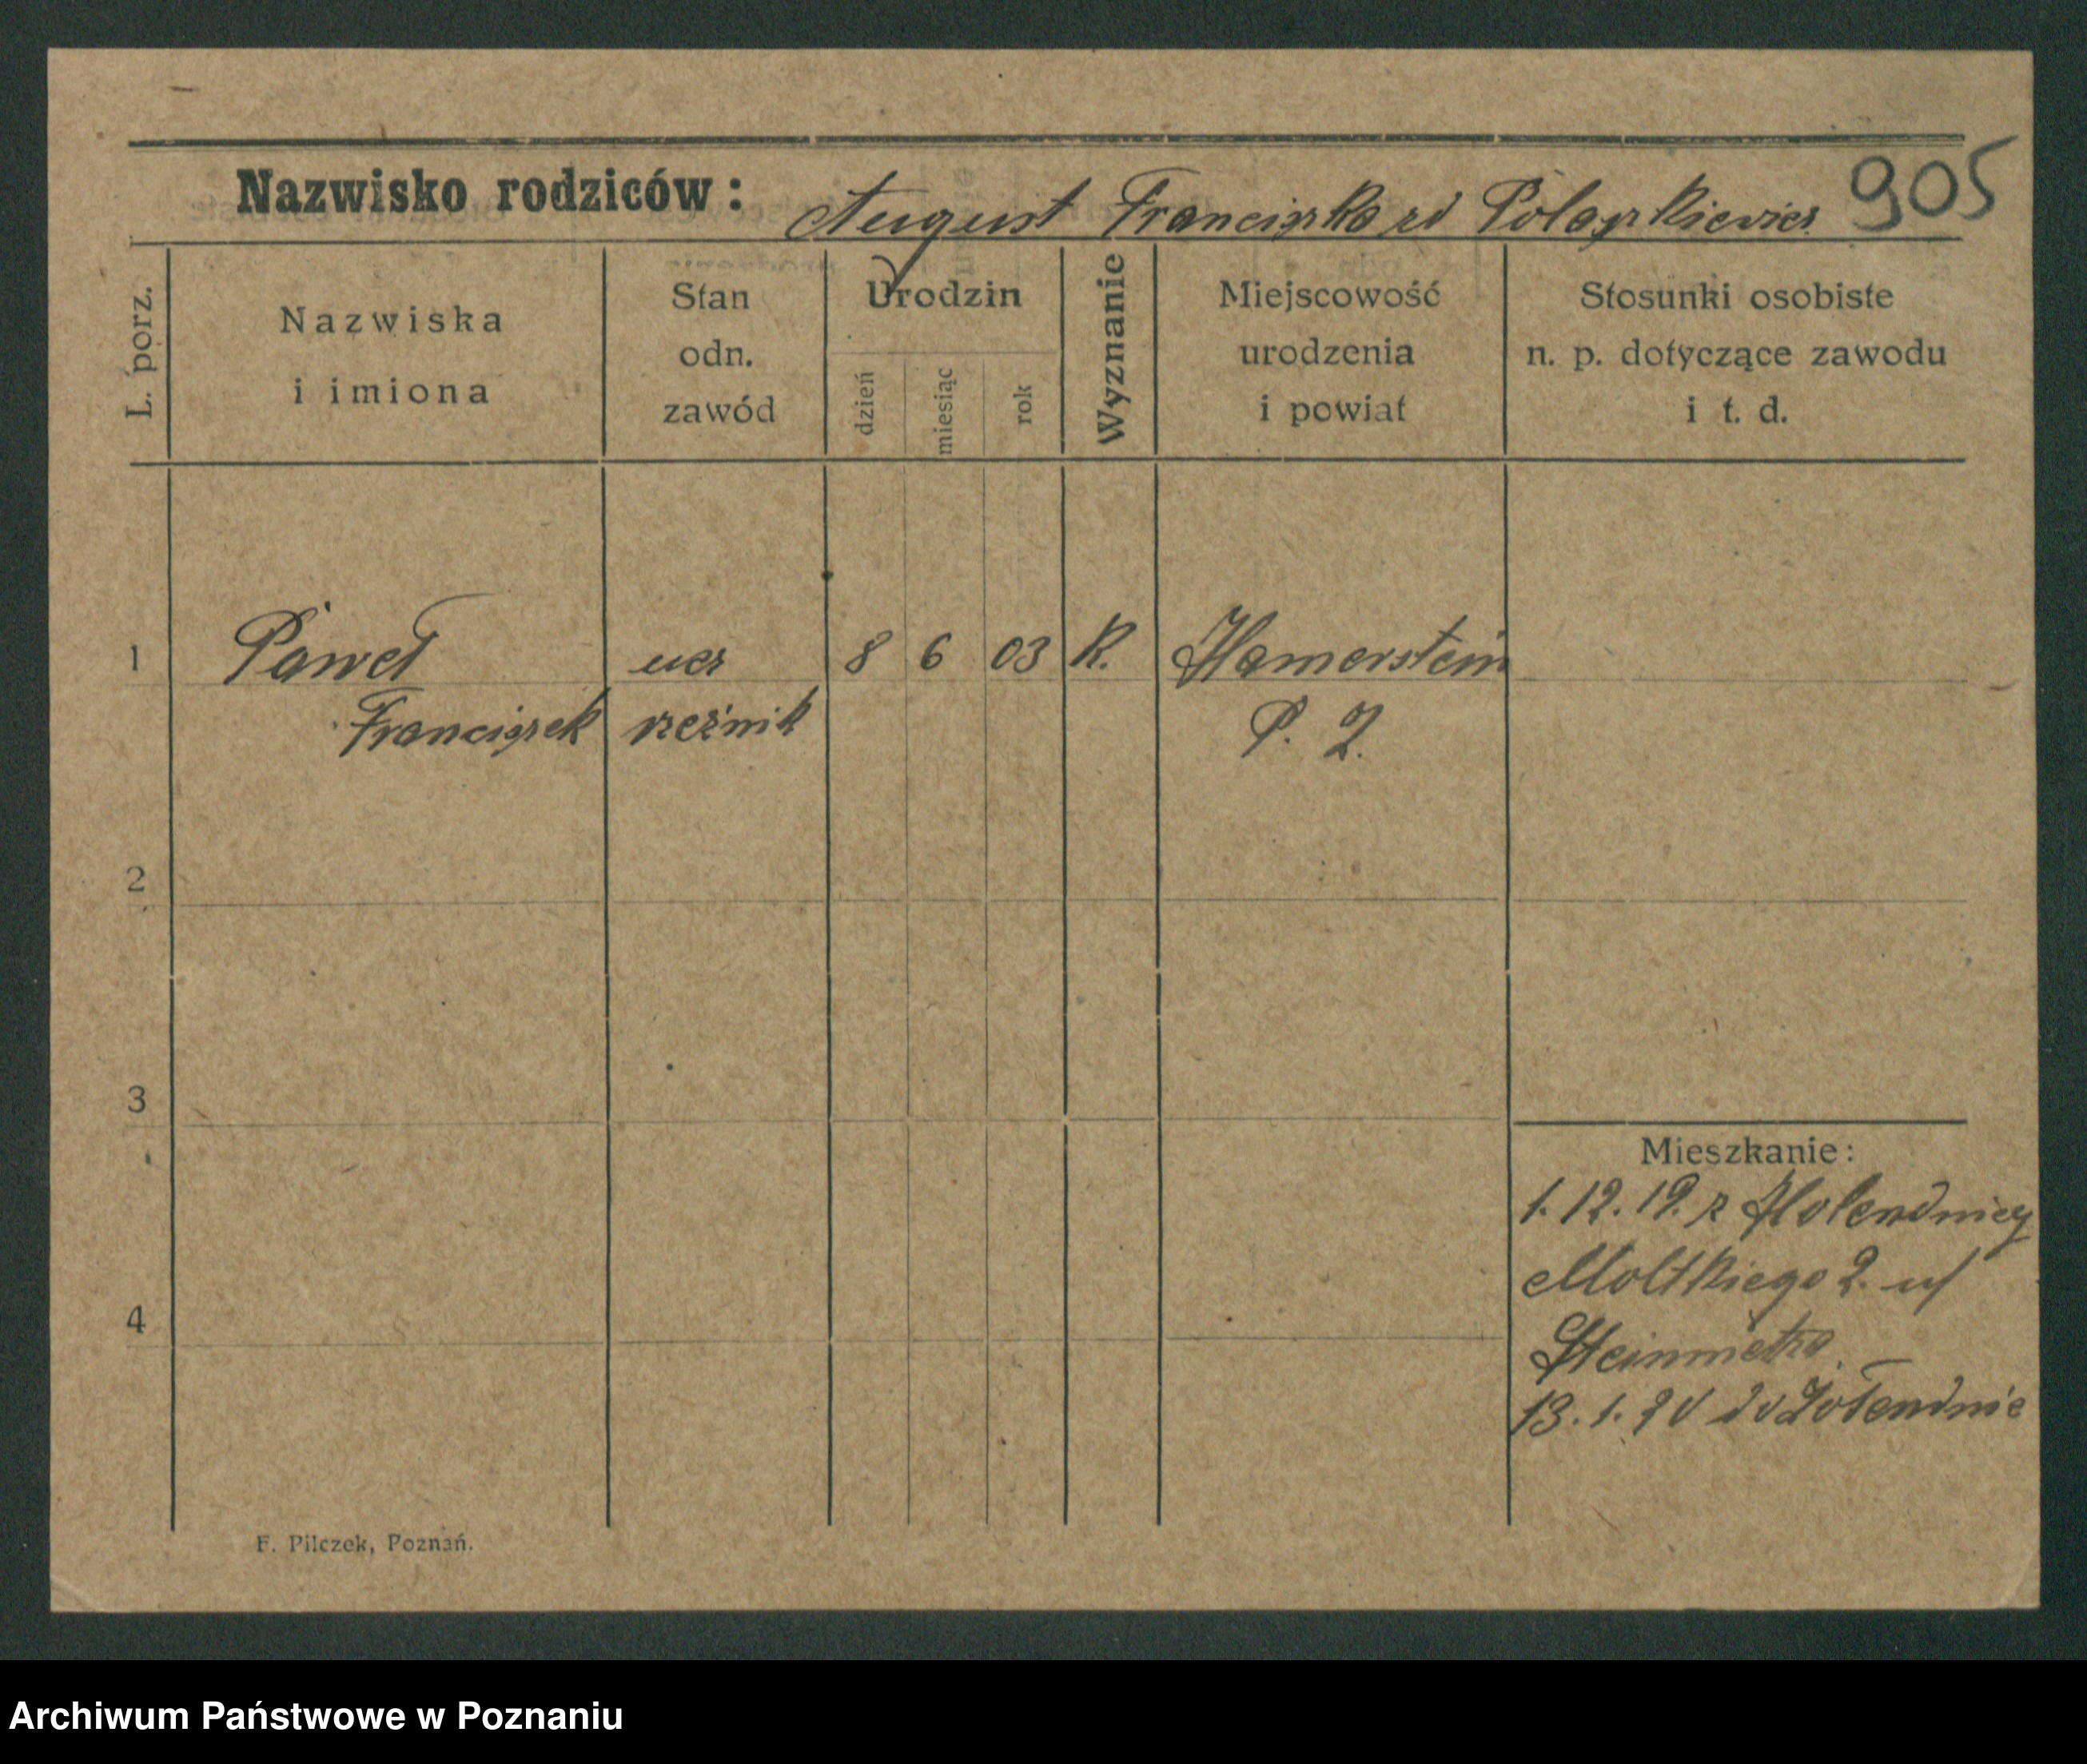 Nazwisko rodziców: August Franciszka zd Polaszkiewicz 905
L. porz.
Nazwiska i imiona
Stan odn. zawód
Urodzin
dzień
miesiąc
rok
Wyznanie
Miejscowość urodzenia i powiat
Stosunki osobiste n. p. dotyczące zawodu i t. d.
1 Paweł ucz 8 6 03 K. Hamerstein
Franciszek rzeźnik P. Z.
2
3
Mieszkanie:
1.12.19. z
Moltkiego 2. u/
4
Steinmetza
13.1.20 do
F. Pilczek, Poznań.
Archiwum Państwowe w Poznaniu